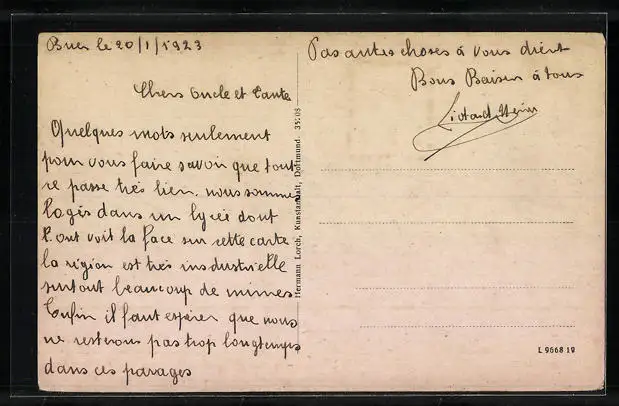 Buer le 20/1/1923
Chers Oncle et Tante
Quelques mots seulement
pour vous faire savoir que tout
ce passe très bien. nous somme
logés dans un lycée dont
l'ont voit la face sur cette carte
la région est très insdustrielle
surtout beaucoup de mines
Enfin il faut espérer que nous
ne resterons pas trop longtemps
dans ces parages
Hermann Lorch, Kunstanstalt, Dortmund. 35:08
Pas autes choses à vous dient
Bons Baiser à tous
L 9668 19